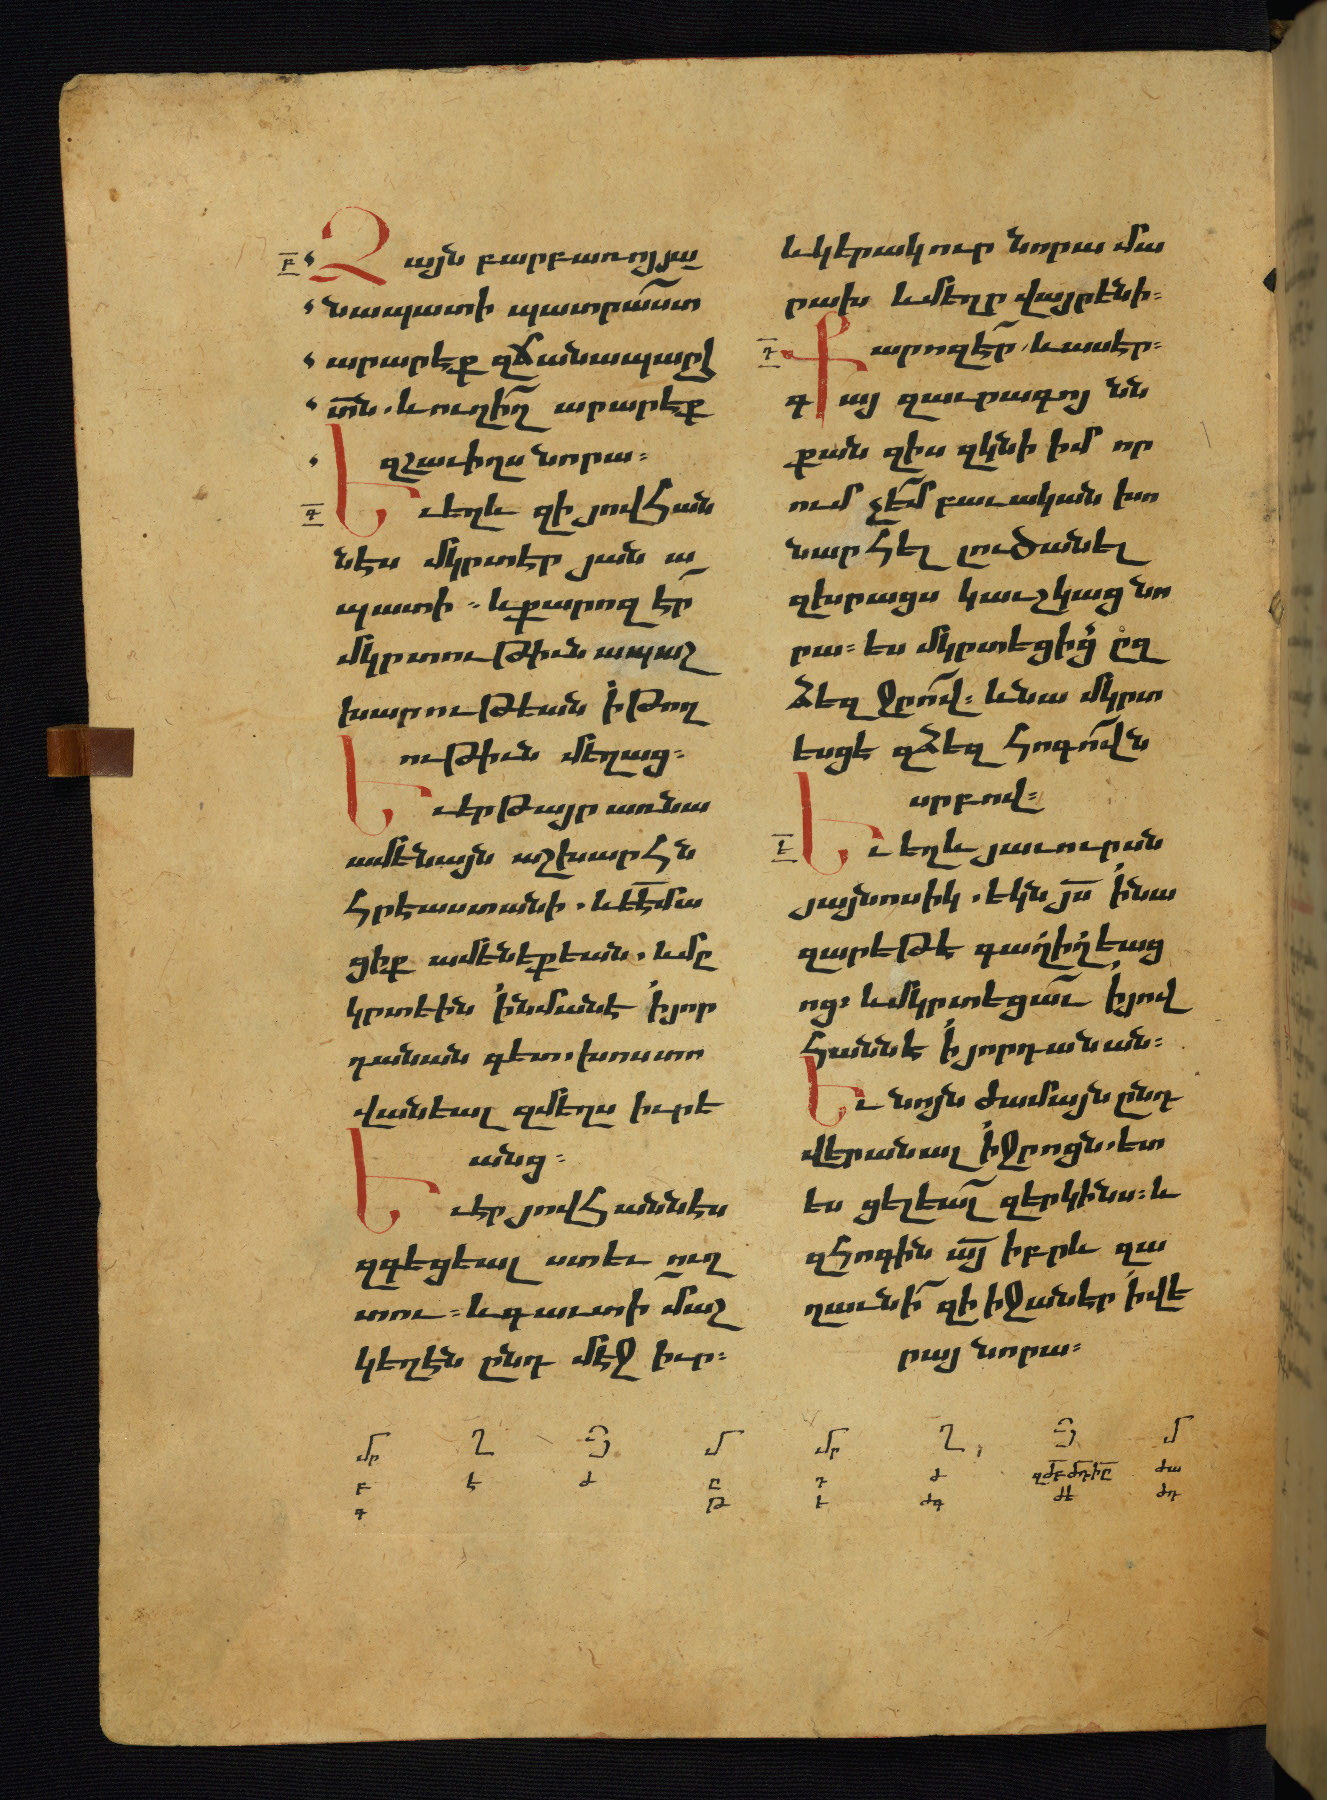 Ձայն բարբառոյ յա
նապատի պատրա՟ստ
արարէք զճանապարհ
տ՟ն. և ուղի՟ղ արարէք
զշաւիղս նորա։
Եւ եղև զի յովհան
նէս մկրտէր յան ա
պատի։ և քարոզ է՟ր
մկրտութիւն ապաշ
խարութեան ի թող
ութիւն մեղաց։
Եւ երթայր առ նա
ամենայն աշխարհն
հրէաստանի. և ե՟մա
ցիք ամենեքեան. և մը
կրտէին ի նմանէ ի յոր
դանան գետ. խոստո
վանեալ զմեղս իւրե
անց։
Եւ էր յովհաննէս
զգեցեալ ստեւ ուղ
տու։ և գաւտի մաշ
կեղէն ընդ մէջ իւր։
և կերակուր նորա մա
րախ և մեղր վայրենի։
Քարոզէ՟ր. և ասէր։
գ այ զաւրագոյ նն
քան զիս զկնի իմ որ
ում չե՟մ բաւական խո
նարհել լուծանել
զխրացս կաւշկաց նո
րա։ ես մկրտեցից ըզ
ձեզ ջրո՟վ։ և նա մկրտ
եսցէ զձեզ հոգո՟վն
սրբով։
Եւ եղև յաւուրսն
յայնոսիկ. եկն յս՟ ի նա
զարեթէ գաղիղեաց
ոց։ և մկրտեցաւ ի յով
հաննէ ի յորդանան։
Եւ նոյն ժամայն ընդ
վերանալ ի ջրոցն. ետ
ես ցելեալ զերկինս։ և
զհոգին ա՟յ իբրև զա
ղաւնի՟ զի իջանէր ի վե
րայ նորա։
մր ղ յ մ մր ղ յ մ
բ է ժ ը դ ժ
գ թ ե ժգ ժե ժդ